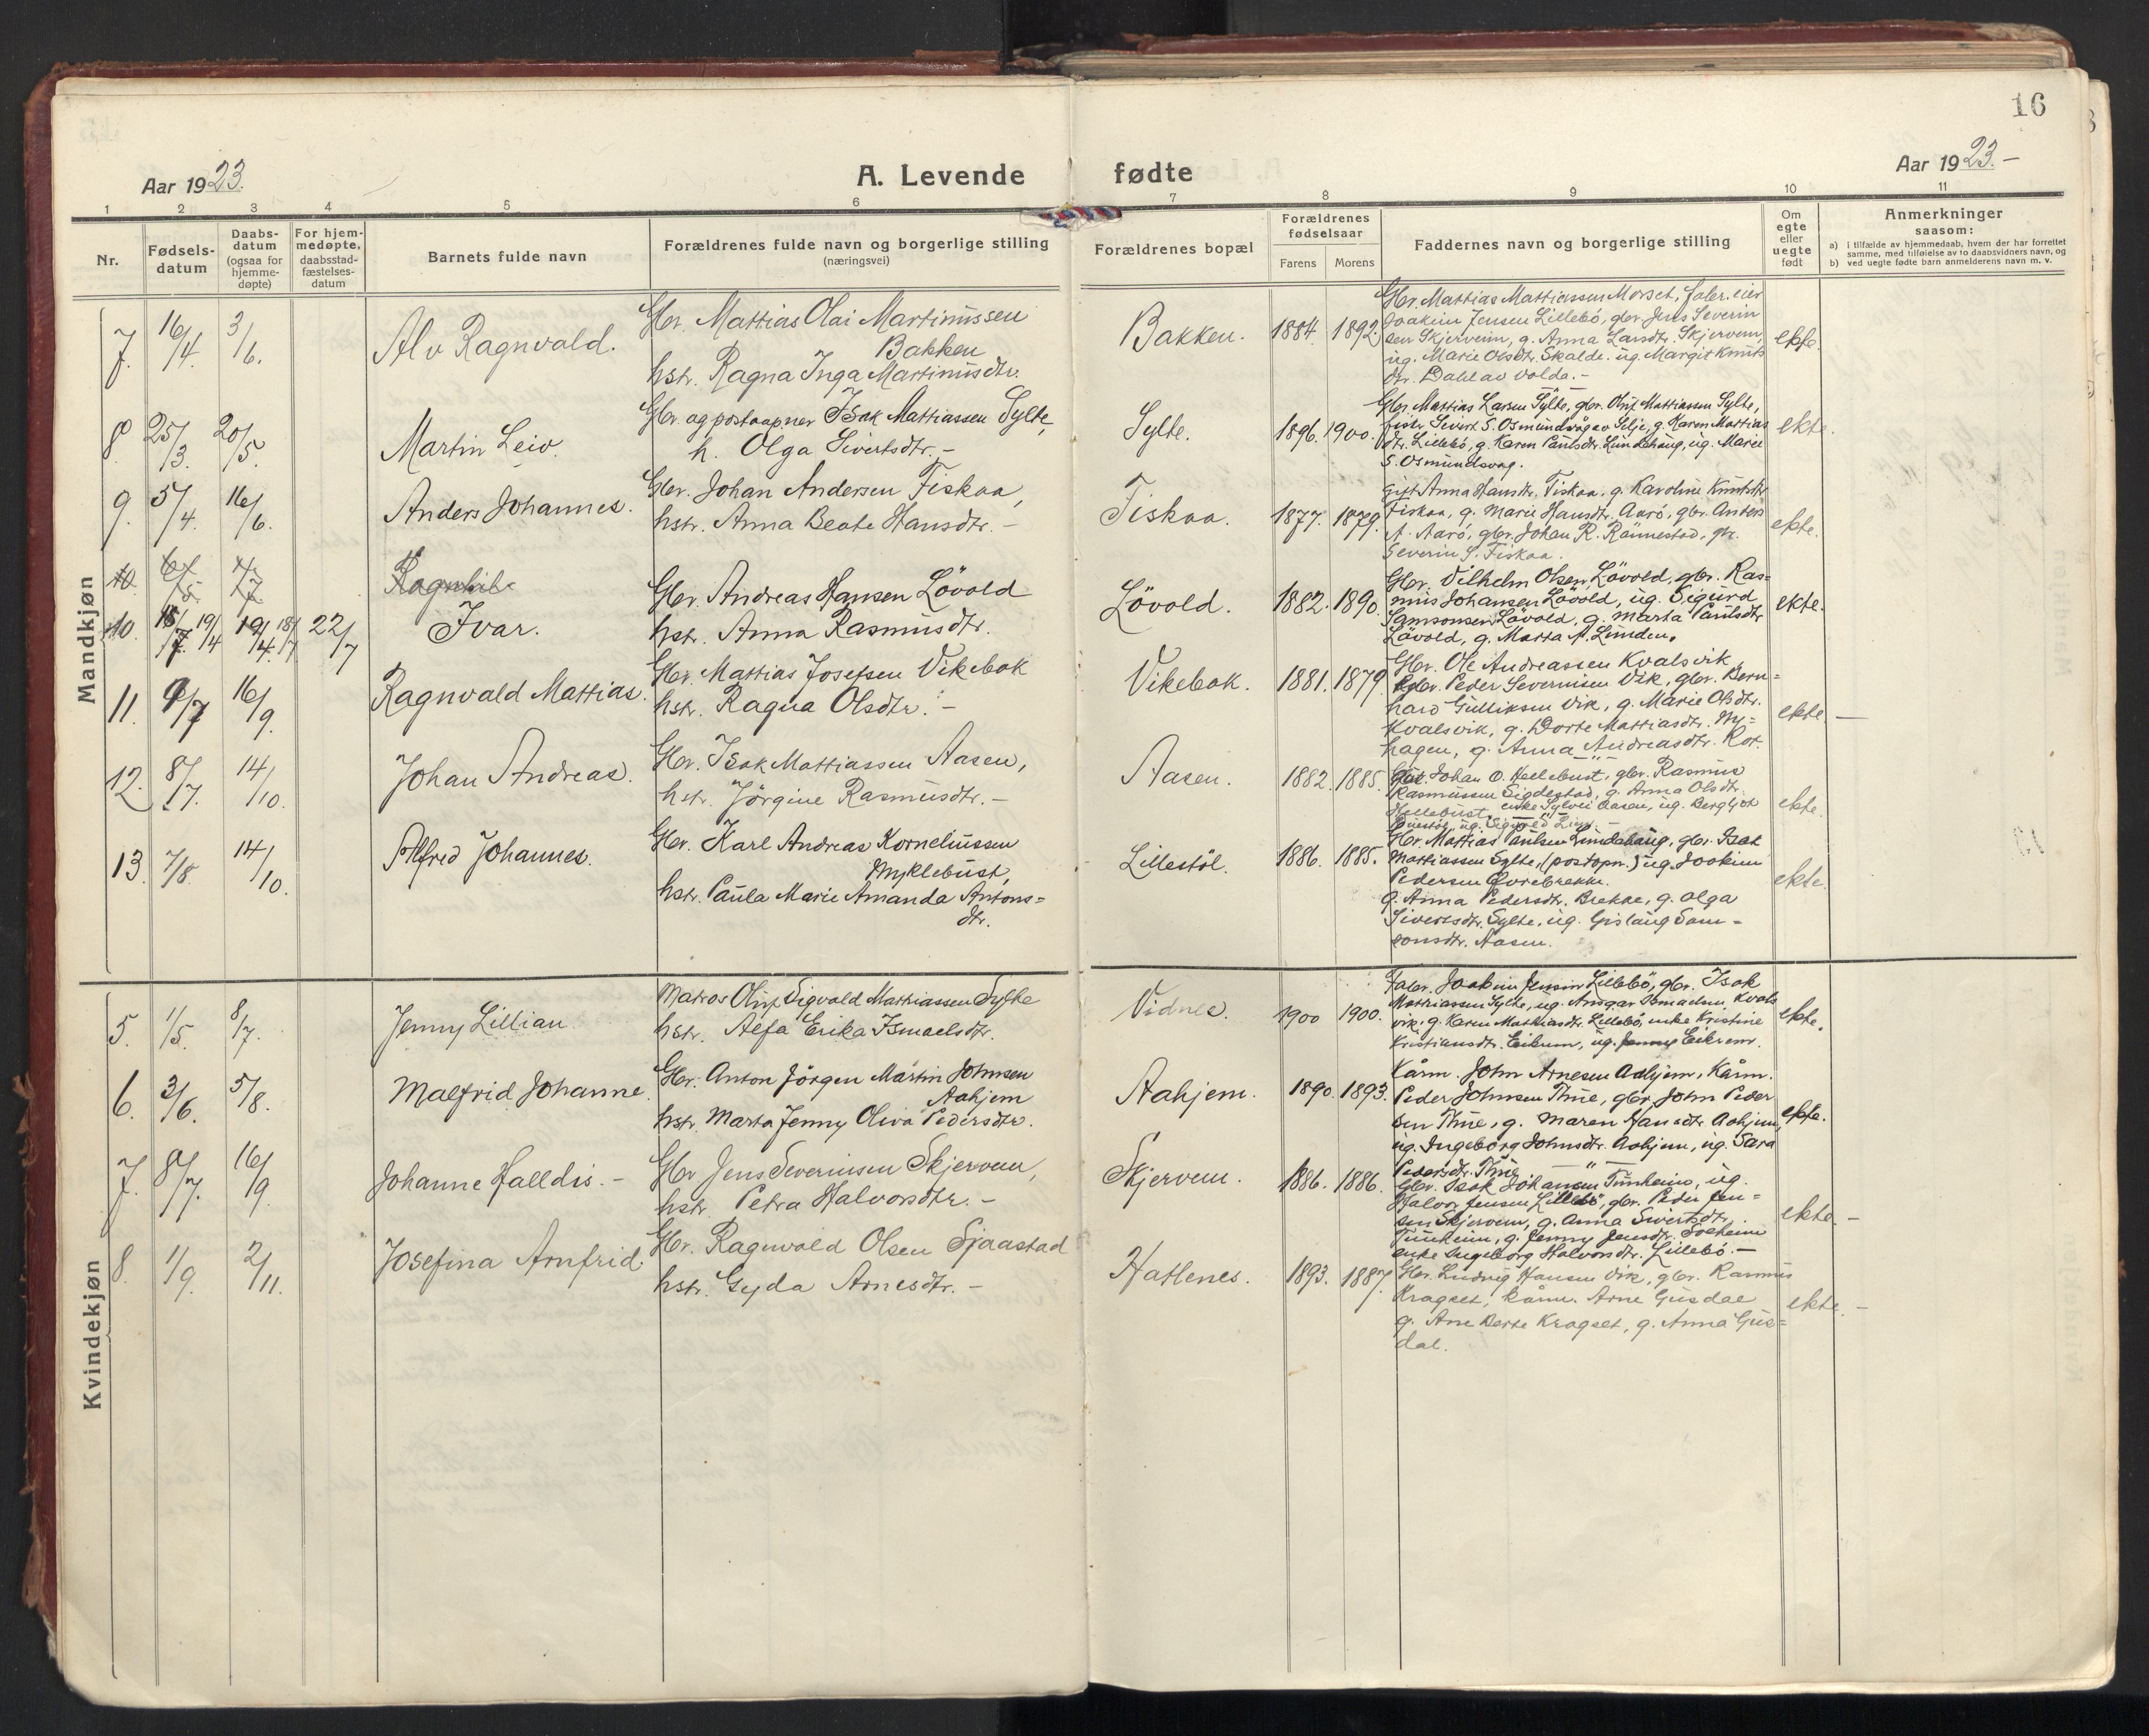 16
Aar 1923.
A. Levende fødte
Aar 1923.-
1 2 3 4 5 6 7 8 9 10 11
Nr.
Fødsels-
datum
Daabs-
datum
(ogsaa for
hjemme-
døpte)
For hjem-
medøpte,
daabsstad-
fæstelses-
datum
Barnets fulde navn
Forældrenes fulde navn og borgerlige stilling
(næringsvei)
Forældrenes bopæl
Forældrenes
fødselsaar
Farens Morens
Faddernes navn og borgerlige stilling
Om
egte
eller
uegte
født
Anmerkninger
saasom:
a) i tilfælde av hjemmedaab, hvem der har forrettet
samme, med tilføielse av to daabsvidners navn, og
b) ved uegte fødte barn anmelderens navn m. v.
Mandkjøn
7. 16/4. 3/6. Alv Ragnvald.
Gbr. Mattias Olai Martinussen
Bakken
hstr. Ragna Inga Martinusdtr.
Bakken. 1884. 1892.
Gbr. Mattias Mattiassen Morset, faler. eier
Joakim Jensen Lillebö, gbr. Jens Severin
sen Skjerveim, g. Anna Larsdtr. Skjervem,
ug. Marie Olsdtr. Skalde. ug. Margit Knuts
dtr. Dahl av Volda.-
ekte.
8. 25/3. 20/5. Martin Leiv.
Gbr og postaapner Isak Mattiassen Sylte,
h. Olga Sivertsdtr.-
Sylte. 1896. 1900.
Gbr. Mattias Larsen Sylte, gbr. Oluf Mattiassen Sylte,
Sivert S. Osmundvåg av Selje, g. Karen Mattias
dtr. Lillebö, g. Karen Paulsdtr. Lundehaug, ug. Marie
S. Osmundsvag.
ekte.
9. 5/4. 16/6. Anders Johannes.
Gbr. Johan Andersen Fiskaa,
hstr. Anna Beate Hansdtr.-
Fiskaa. 1877. 1879.
Gift Anna Hansdtr. Fiskaa, g. Karoline Knutsdtr
Fiskaa, g. Marie Hansdtr. Aarö, gbr. Anders
A. Aarö, gbr. Johan R. Rönnestad, gbr.
Severin S. Fiskaa.
ekte.
10. Ragnhild
10. 18/7. 19/4 19/4. 18/7 22/7 Ivar.
Gbr. Andreas Hansen Lövold
hstr. Anna Rasmusdtr.
Lövold. 1882. 1890.
Gbr. Vilhelm Olsen Lövold, gbr. Ras=
mus Johansen Lövold, ug. Sigurd
Samsonsen Lövold, g. Marta Paulsdtr
Lövold, g. Marta A. Lunden.
ekte.
11. 9/7 16/9. Ragnvald Mattias.
Gbr. Mattias Josefsen Vikebak
hstr. Ragna Olsdtr.-
Vikebak. 1881. 1879.
Gbr. Ole Andreassen Kvalsvik,
gbr. Peder Severinsen Vik, gbr. Bern=
hard Gulliksen Vik, g. Marie Olsdtr.
Kvalsvik, g. Dorte Mattiasdtr. My=
hagen, g. Anna Andreasdtr. Rot.
ekte.-
12. 8/7. 14/10. Johan Andreas.
Gbr. Isak Mattiassen Aasen,
hstr. Jörgine Rasmusdtr.-
Aasen. 1882. 1885.
Gbr. Johan O. Hellebust, gbr. Rasmus
Rasmussen Sigdestad, g. Anna Olsdtr.
Hellebust, enke Sylvei Aasen, ug. Bergljot
ekte.
13. 7/8. 14/10. Alfred Johannes.
Gbr. Karl Andreas Korneliussen
Myklebust,
hstr. Paula Marie Amanda Antons=
dtr.
Lillestöl. 1886. 1885.
Gbr. Mattias Paulsen Lundehaug, gbr. Isak
Mattiassen Sylte, (postopn.) ug. Joakim
Pedersen Övrebrekke.
g. Anna Pedersdtr. Brekke, g. Olga
Sivertsdtr. Sylte, ug. Gislaug Sam=
sonsdtr. Aasen.
ekte.
Kvindekjøn
5. 1/5. 8/7. Jenny Lillian
Matros Oluf Sigvald Mattiassen Sylte
hstr. Alfa Erika Ismaelsdtr.
Vidnes. 1900 1900.
Faler. Joakim Jensen Lillebö, gbr. Isak
Mattiassen Sylte, ug. Ansgar Ismaelsen Kvals
vik, g. Karen Mathiasdtr. Lillebö, enke Kristine
Kristiansdtr. Eikrem, ug. Jenny Eikrem.
ekte.
6. 3/6. 5/8. Malfrid Johanne.
Gbr. Anton Jörgen Martin Johnsen
Aahjem
hstr. Marta Jenny Oliva Pedersdtr.
Aahjem. 1890. 1893.
Kårm. John Arnesen Aahjem, Kårm.
Peder Johnsen Thue, gbr. John Peder
sen Thue, g. Maren Hansdtr. Aahjem,
ug. Ingeborg Johnsdtr. Aahjem, ug. Sara
Pedersdtr. Thue
ekte.
7. 8/7. 16/9. Johanne Halldis.-
Gbr Jens Severinsen Skjervem,
hstr. Petra Halvorsdtr.-
Skjervem. 1886. 1886.
Gbr. Isak Johansen Tunheim, ug.
Halvor Jensen Lillebö, gbr. Peder Jen=
sen Skjervem, g. Anna Sivertsdtr.
Tunheim, g. Jenny Jensdtr. Solheim
enke Ingeborg Halvorsdtr. Lillebö.-
ekte.-
8. 1/9. 2/11. Josefina Arnfrid.
Gbr. Ragnvald Olsen Sjaastad
hstr. Gyda Arnesdtr.-
Hatlenes. 1893. 1887.
Gbr. Ludvig Hansen Vik, gbr. Rasmus
Kragset, kårm. Arne Gusdal
g. Ane Berte Kragset, g. Anna Gus=
dal.
ekte.-